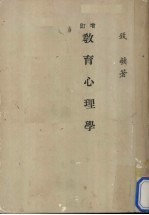 增訂
教育心理學
錢蘋著